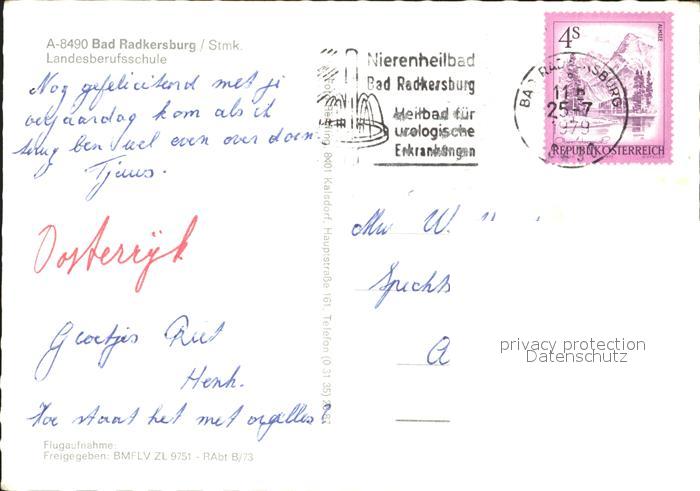 A-8490 Bad Radkersburg / Stmk.
Landesberufsschule
Nog gefeliciteerd met je
verjaardag kom als ik
terug ben wel even over doen.
Tjuus.
Oosterrijk
Groetjes Riet
Henk.
Hoe staat het met orgelles?
Flugaufnahme:
Freigegeben: BMFLV ZL 9751 - RAbt B/73
8401 Kalsdorf, Hauptstraße 161, Telefon (0 31 35)
Nierenheilbad
Bad Radkersburg
Heilbad für
urologische
Erkrankungen
BAD RADKERSBURG
11
25-7
1979
8490
4S
ALMSEE
REPUBLIK ÖSTERREICH
W.
Spechts
A
privacy protection
Datenschutz